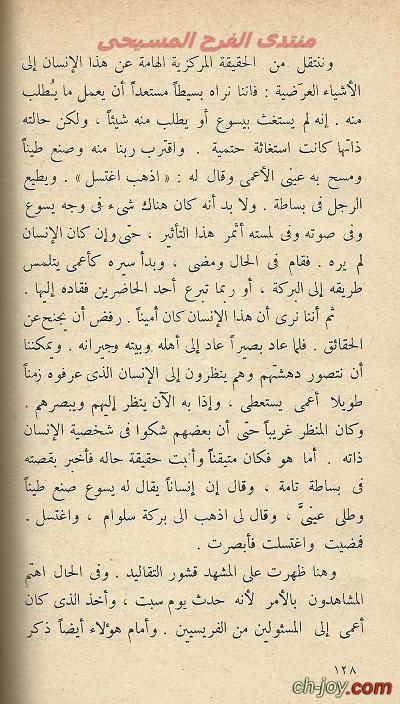 منتدى الفرح المسيحى
وننتقل من الحقيقة المركزية الهامة عن هذا الإنسان إلى
الأشياء العرَضية : فاننا نراه بسيطاً مستعداً أن يعمل ما يُطلب
منه . إنه لم يستغث بيسوع أو يطلب منه شيئاً ، ولكن حالته
ذاتها كانت استغاثة حتمية . واقترب ربنا منه وصنع طيناً
ومسح به عينى الأعمى وقال له : « اذهب اغتسل » . ويطيع
الرجل فى بساطة . ولا بد أنه كان هناك شىء فى وجه يسوع
وفى صوته وفى لمسته أثمر هذا التأثير ، حتى وإن كان الإنسان
لم يره . فقام فى الحال ومضى ، وبدأ سيره كأعمى يتلمس
طريقه إلى البركة ، أو ربما تبرع أحد الحاضرين فقاده إليها .
ثم أننا نرى أن هذا الإنسان كان أميناً . رفض أن يجنح عن
الحقائق . فلما عاد بصيراً عاد إلى أهله وبيته وجيرانه . ويمكننا
أن نتصور دهشتهم وهم ينظرون إلى الإنسان الذى عرفوه زمناً
طويلا أعمى يستعطى ، وإذا به الآن ينظر إليهم ويبصرهم .
وكان المنظر غريباً حتى أن بعضهم شكوا فى شخصية الإنسان
ذاته . أما هو فكان متيقناً وأثبت حقيقة حاله فأخبر بقصته
فى بساطة تامة ، وقال إن إنساناً يقال له يسوع صنع طيناً
وطلى عينىَّ ، وقال لى اذهب الى بركة سلوام ، واغتسل .
فمضيت واغتسلت فأبصرت .
وهنا ظهرت على المشهد قشور التقاليد . وفى الحال اهتم
المشاهدون بالأمر لأنه حدث يوم سبت ، وأخذ الذى كان
أعمى إلى المسئولين من الفريسيين . وأمام هؤلاء أيضاً ذكر
١٢٨
ch-joy.com